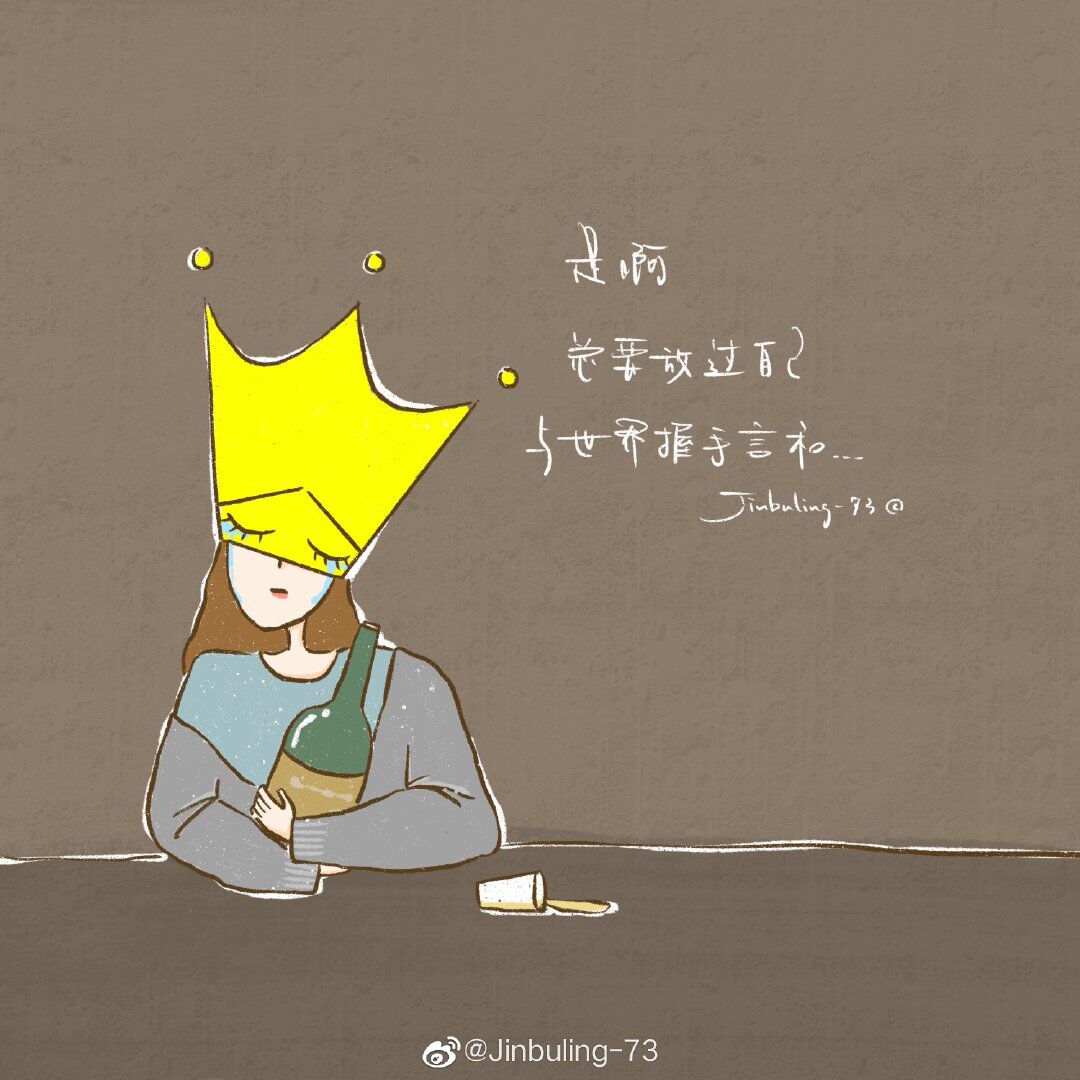 是啊
总要放过自己
与世界握手言和...
Jinbuling-73@
@Jinbuling-73